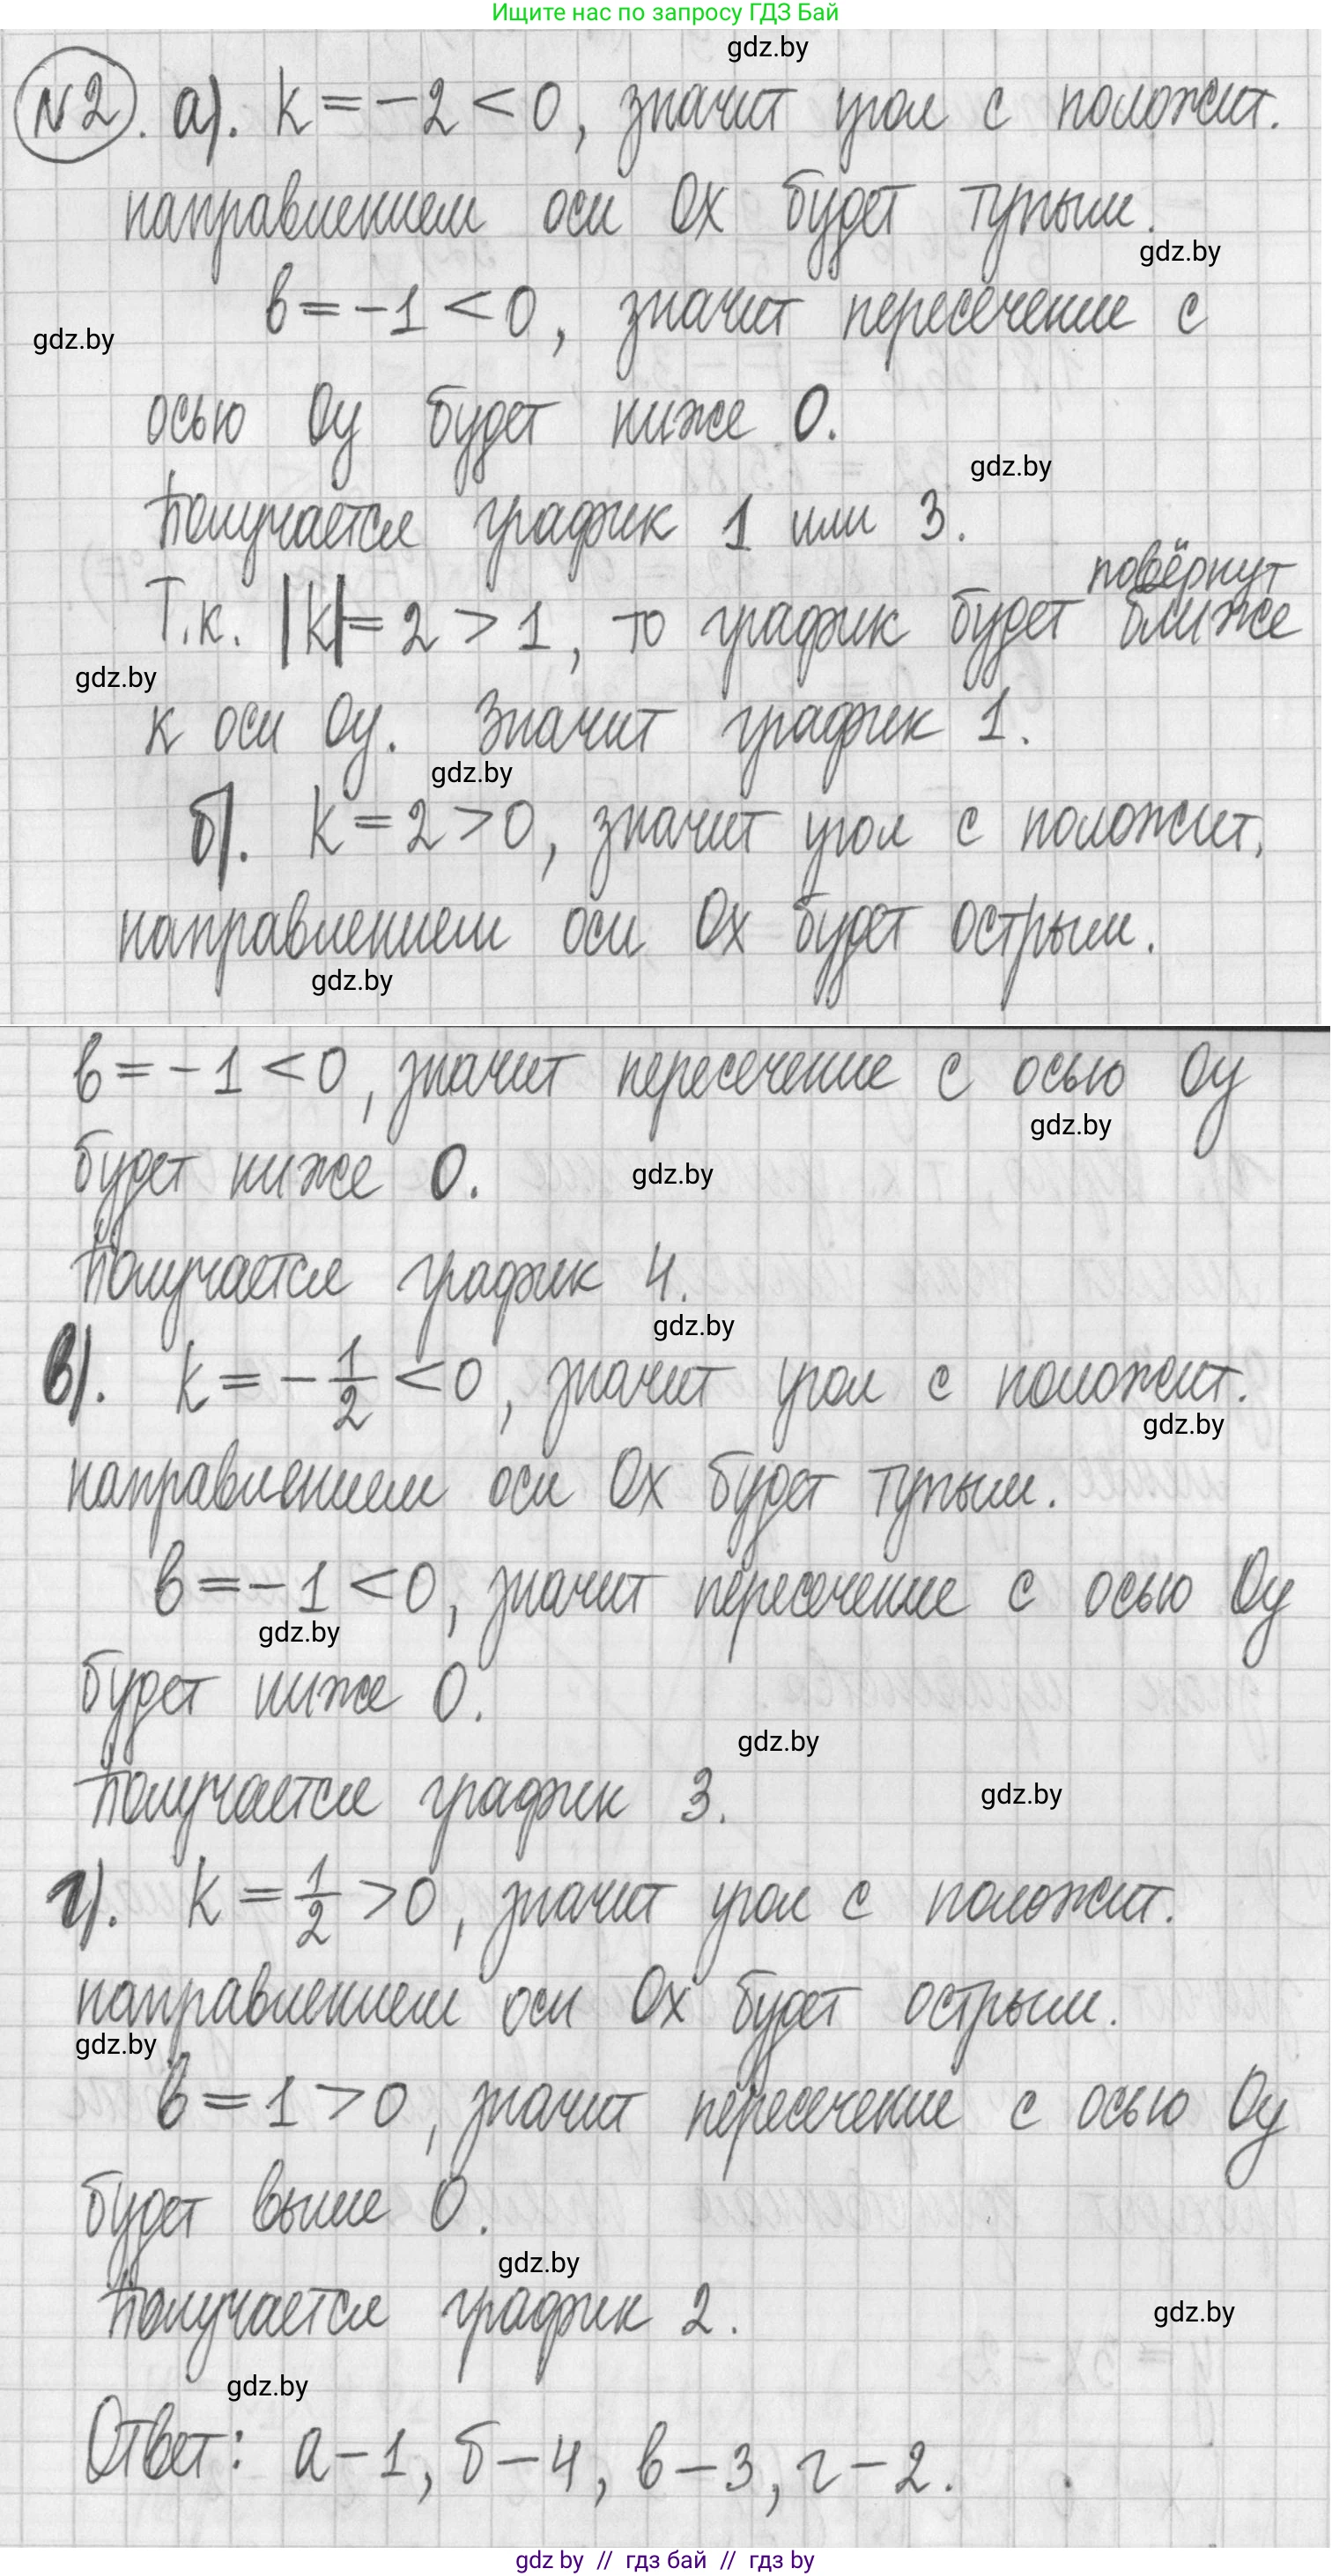 Ищите нас по запросу ГДЗ Бай
gdz.by
№2. а). k = -2 < 0, значит угол с положит.
направлением оси Ох будет тупым.
gdz.by
в = -1 < 0, значит пересечение с
gdz.by
осью Оу будет ниже 0.
gdz.by
Получается график 1 или 3.
повёрнут
Т.к. |k| = 2 > 1, то график будет ближе
gdz.by
к оси Оу. Значит график 1.
gdz.by
б). k = 2 > 0, значит угол с положит.
направлением оси Ох будет острым.
gdz.by
в = -1 < 0, значит пересечение с осью Оу
gdz.by
будет ниже 0.
gdz.by
Получается график 4.
gdz.by
в). k = -1/2 < 0, значит угол с положит.
gdz.by
направлением оси Ох будет тупым.
в = -1 < 0, значит пересечение с осью Оу
gdz.by
будет ниже 0.
gdz.by
Получается график 3.
gdz.by
г). k = 1/2 > 0, значит угол с положит.
направлением оси Ох будет острым.
gdz.by
в = 1 > 0, значит пересечение с осью Оу
будет выше 0.
gdz.by
Получается график 2.
gdz.by
gdz.by
Ответ: а-1, б-4, в-3, г-2.
gdz by // гдз бай // гдз by